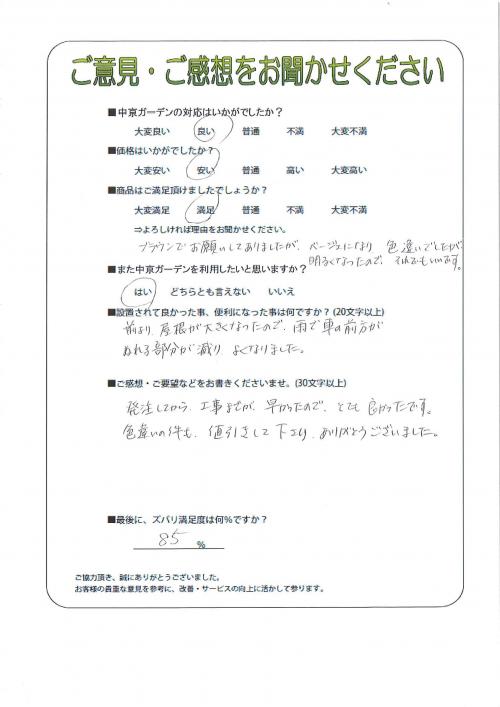 ご意見・ご感想をお聞かせください
■中京ガーデンの対応はいかがでしたか？
大変良い 良い 普通 不満 大変不満
■価格はいかがでしたか？
大変安い 安い 普通 高い 大変高い
■商品はご満足頂けましたでしょうか？
大変満足 満足 普通 不満 大変不満
⇒よろしければ理由をお聞かせください。
ブラウンでお願いしてありましたが、ベージュになり 色違いでしたが
明るくなったので、それでもいいです。
■また中京ガーデンを利用したいと思いますか？
はい どちらとも言えない いいえ
■設置されて良かった事、便利になった事は何ですか？(20文字以上)
前より屋根が大きくなったので、雨で車の前方が
ぬれる部分が減り よくなりました。
■ご感想・ご要望などをお書きくださいませ。(30文字以上)
発注してから、工事までが、早かったので、とても良かったです。
色違いの件も、値引きして下さり、ありがとうございました。
■最後に、ズバリ満足度は何％ですか？
85 %
ご協力頂き、誠にありがとうございました。
お客様の貴重な意見を参考に、改善・サービスの向上に活かして参ります。